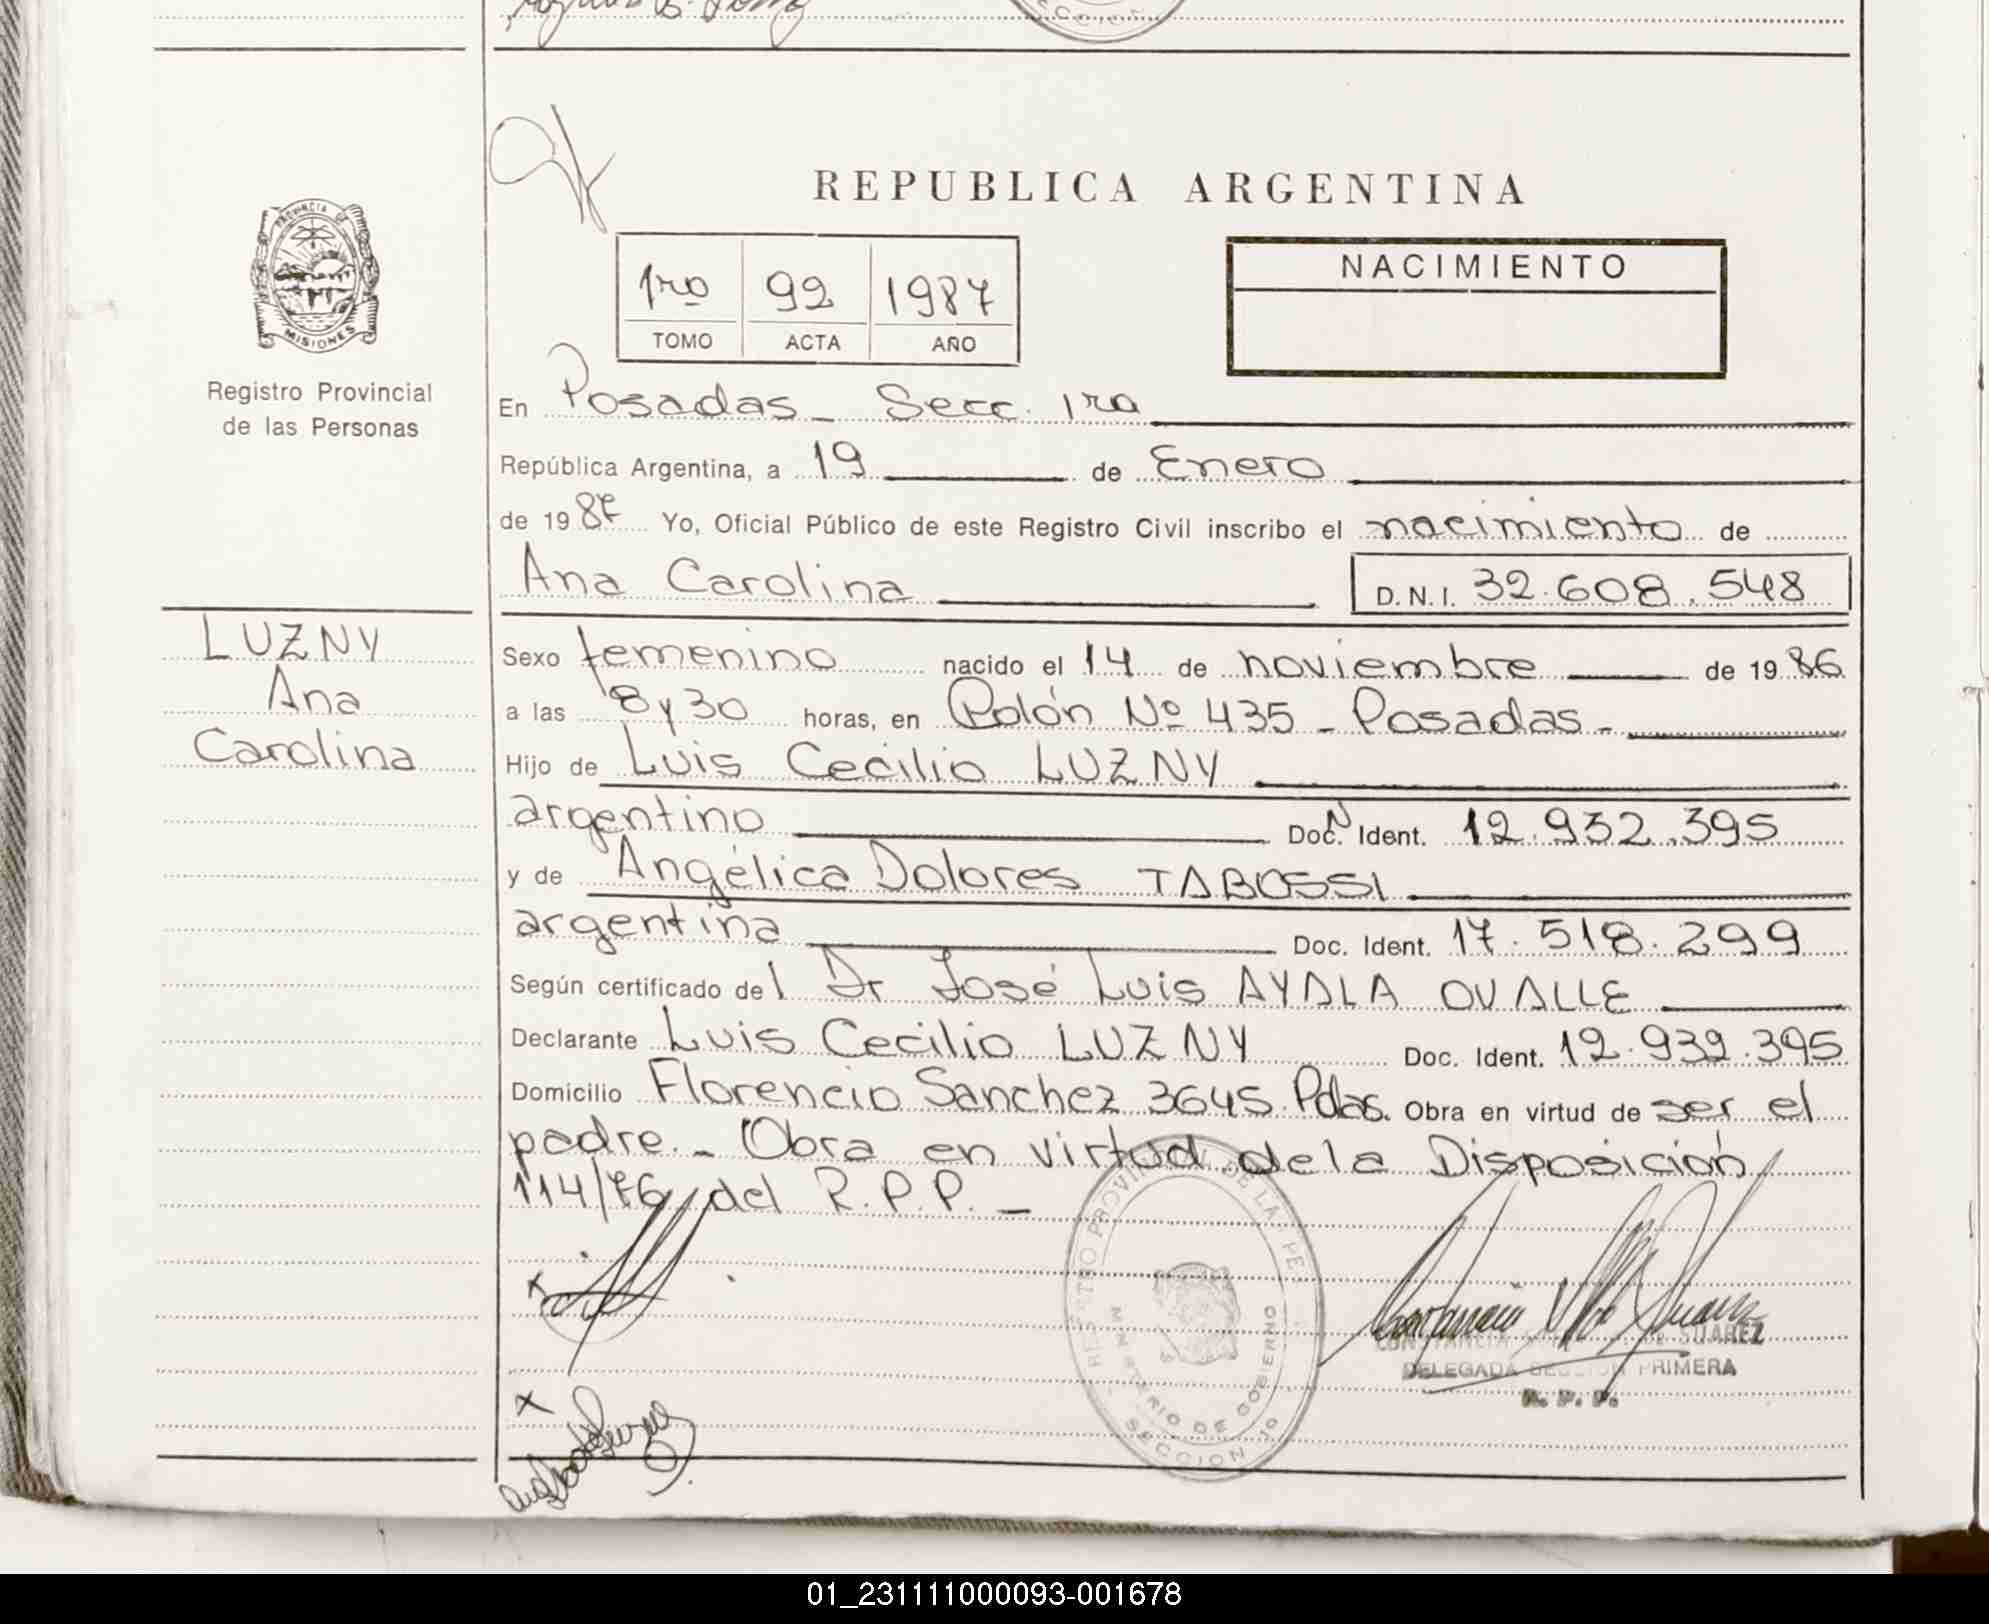 REPUBLICA ARGENTINA
PROVINCIA DE
MISIONES
Registro Provincial
de las Personas
1ro 92 1987
TOMO ACTA AÑO
NACIMIENTO
En Posadas - Secc. 1ra
República Argentina, a 19 de Enero
de 1987 Yo, Oficial Público de este Registro Civil inscribo el nacimiento de
Ana Carolina D.N.I. 32.608.548
LUZNY
Ana
Carolina
Sexo femenino nacido el 14 de noviembre de 1986
a las 8 y 30 horas, en Colón Nº 435 - Posadas -
Hijo de Luis Cecilio LUZNY
argentino Doc. Ident. 12.932.395
y de Angélica Dolores TABOSSI
argentina Doc. Ident. 17.518.299
Según certificado del Dr José Luis AYALA OVALLE
Declarante Luis Cecilio LUZNY Doc. Ident. 12.932.395
Domicilio Florencio Sanchez 3645 Pdas. Obra en virtud de ser el
padre. - Obra en virtud de la Disposición
114/76 del R.P.P. -
REGISTRO PROVINCIAL DE LAS PE
MINISTERIO DE GOBIERNO
SECCION 1º
CONSTANCIA SUAREZ
DELEGADA SECCION PRIMERA
R. P. P.
01_231111000093-001678